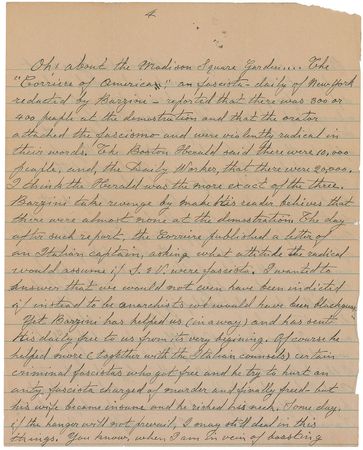 4
Oh! about the Madison Square Garden.... The
"Corriere of American" an fascista-daily of New York
redacted by Barzini - reported that there was 300 or
400 people at the demostration and that the orator
attached the fascismo and were violently radical in
their words. The Boston Herald said there were 10,000
people, and, the Daily Worker, that there were 20,000.
I think the Herald was the more exact of the three.
Barzini take revenge by make his reader believes that
there were almost none at the demostration. The day
after such report, the Corriere published a letter of
an Italian captain, asking what attitude the radical
would assume if S. & V. were fascista. I wanted to
answer that we would not even have been indicted
if instead to be anarchists we would have been
Yet Barzini has helped us (in a way) and has sent
his daily free to us from its very begining. Of course he
helped more (togther with the Italian counsels) certain
criminal fascistes who got free and he try to hurt an
anty fascista charged of murder and finally freed - but
his wife became insane and he risked his neck. Some day,
if the hanger will not prevail, I may still deal in this
things. You know, when I am in vein of boasting